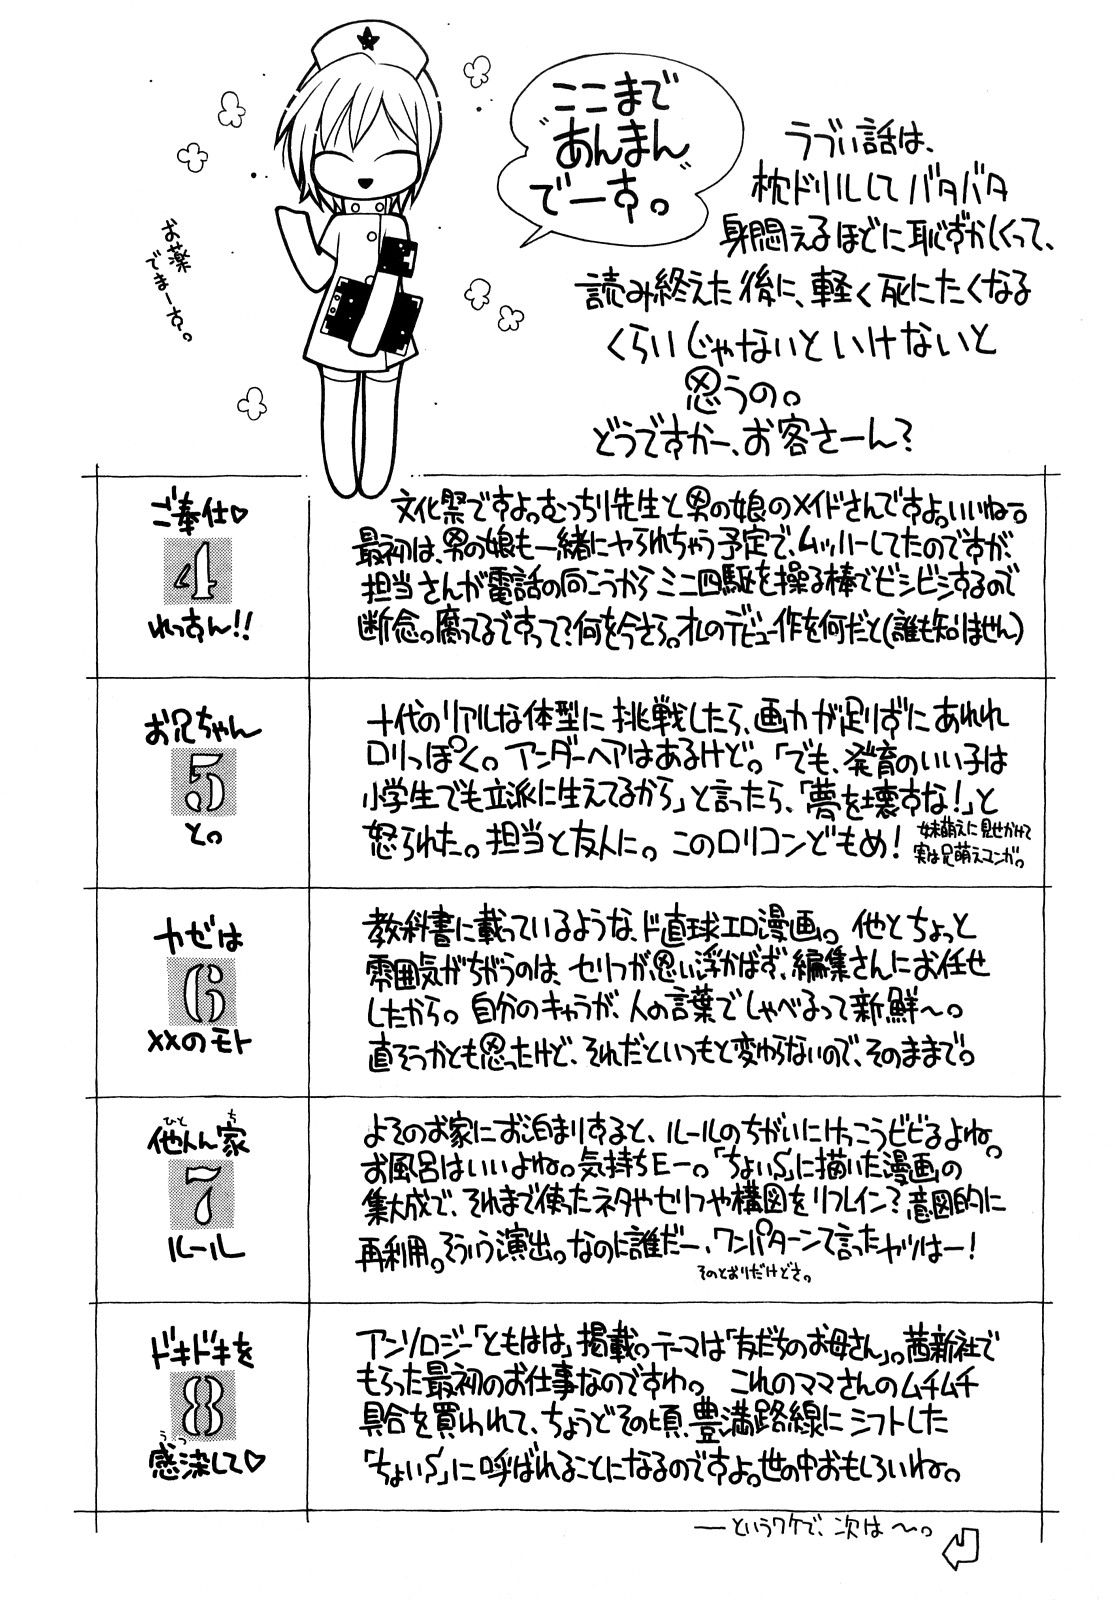 ここまで
"あんまん"
でーす。
お薬
でまーす。
ラヴい話は、
枕ドリルしてバタバタ
身悶えるほどに恥ずかしくって、
読み終えた後に、軽く死にたくなる
くらいじゃないといけないと
思うの。
どうですかー、お客さーん?
ご奉仕♡
4
れっすん!!
文化祭ですよ。むっちり先生と男の娘のメイドさんですよ。いいねー。
最初は、男の娘も一緒にヤられちゃう予定で、ムッハーしてたのですが、
担当さんが電話の向こうからミニ四駆を操る棒でビシビシするので
断念。腐ってるですって?何を今さら。オレのデビュー作を何だと(誰も知りません)
カゼは
6
××のモト
教科書に載っているような、ド直球エロ漫画。他とちょっと
雰囲気がちがうのは、セリフが思い浮かばず、編集さんにお任せ
したから。自分のキャラが、人の言葉でしゃべるって新鮮〜。
直そうかとも思ったけど、それだといつもと変わらないので、そのままで。
他人ん家
ひと ち
7
ルール
よそのお家にお泊まりすると、ルールのちがいにけっこうビビるよね。
お風呂はいいよね。気持ちEー。「ちょいS」に描いた漫画の
集大成で、それまで使ったネタやセリフや構図をリフレイン?意図的に
再利用。そういう演出。なのに誰だー、ワンパターンて言ったヤツはー!
そのとおりだけどさ。
ドキドキを
8
感染して♡
うつ
アンソロジー「ともはは」掲載。テーマは「友だちのお母さん」。茜新社で
もらった最初のお仕事なのですわ。これのママさんのムチムチ
具合を買われて、ちょうどその頃、豊満路線にシフトした
「ちょいS」に呼ばれることになるのですよ。世の中おもしろいね。
——というワケで、次は〜。